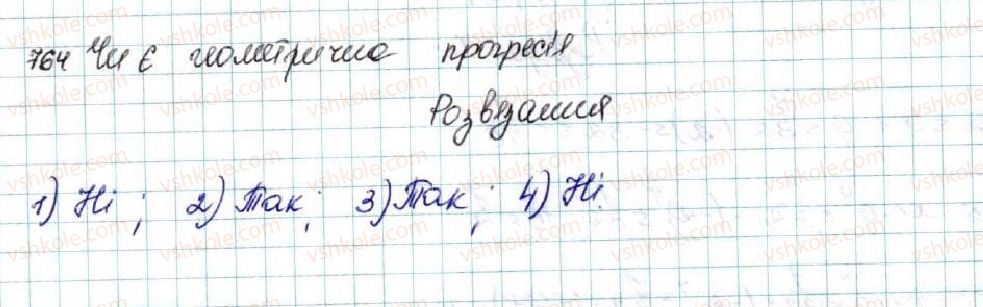 764 Чи є геометрична прогресія
Розвязання
1) Ні ; 2) Так ; 3) Так ; 4) Ні.